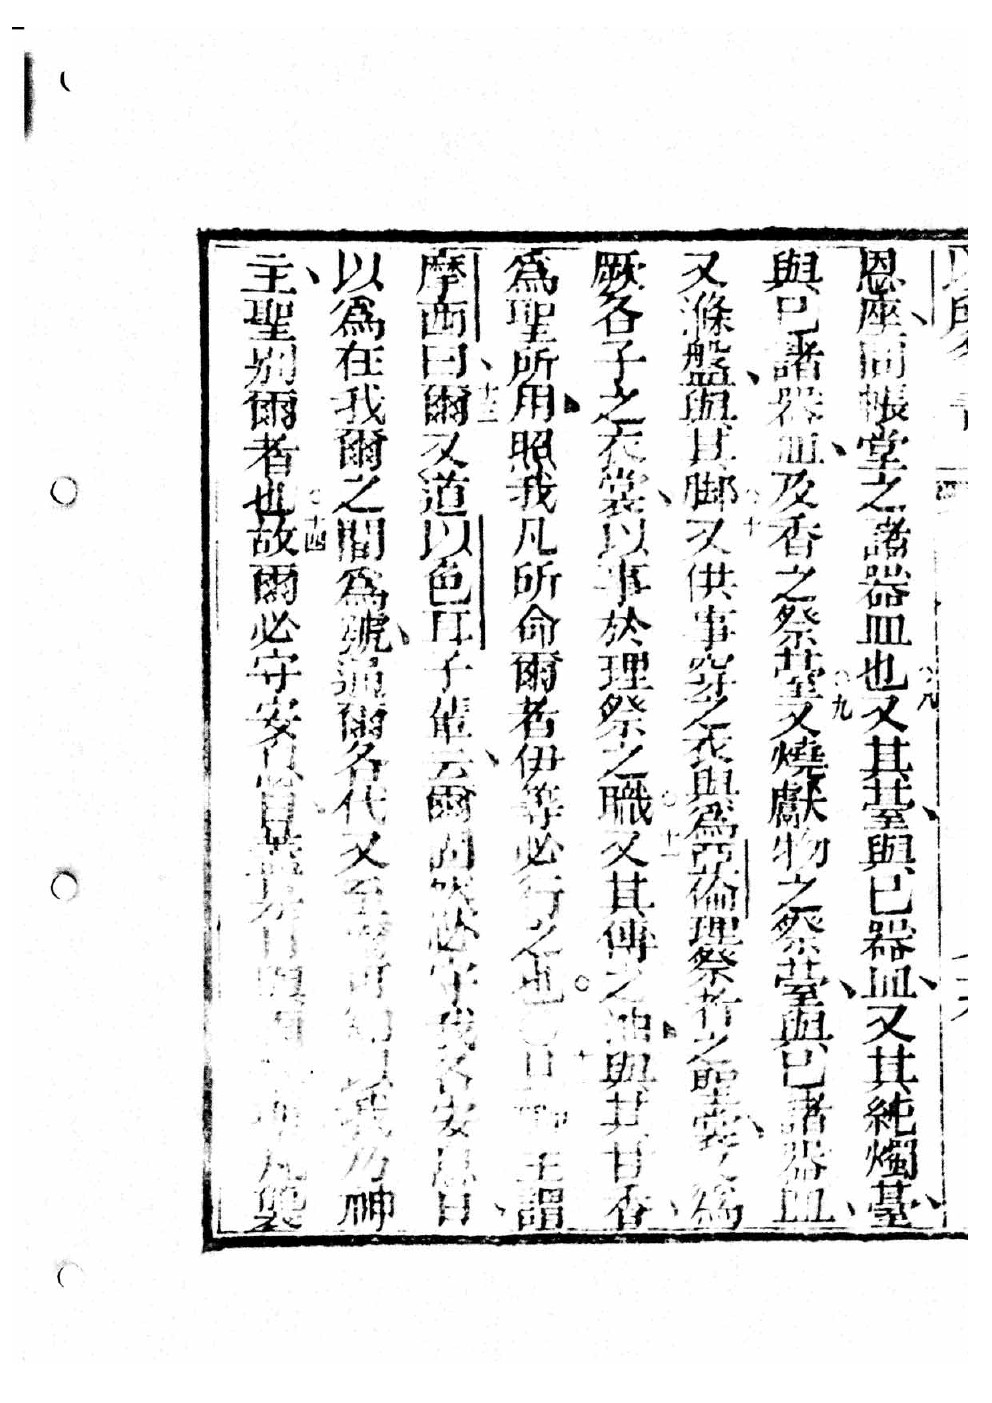 恩座同帳堂之諸器皿也○八又其薹與已器皿又其純燭薹
與已諸器皿及香之祭薹○九又燒獻物之祭薹與已諸器皿
又滌盤與其脚○十又供事穿之衣與為亞倫理祭者之聖裳又為
厥各子之衣裳以事於理祭之職○十一又其傅之油與其甘香
為聖所用照我凡所命爾者伊等必行之也○神主謂
摩西曰十三爾又道以色耳子輩云爾固然必守我各安息日
以為在我爾之間為號通爾各代又至爾可知以我乃神
主聖別爾者也○十四故爾必守安息日